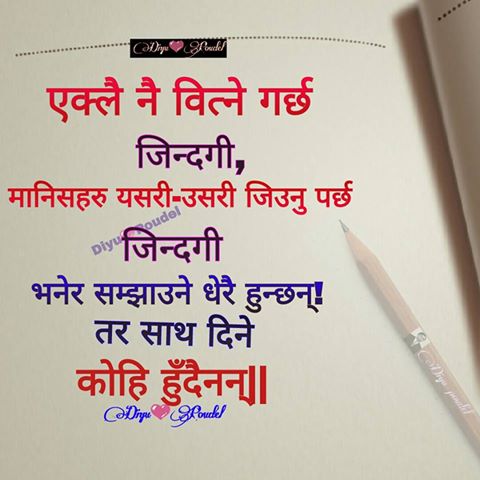 Diyu Poudel
एक्लै नै वित्ने गर्छ
जिन्दगी,
मानिसहरु यसरी-उसरी जिउनु पर्छ
Diyu Poudel
जिन्दगी
भनेर सम्झाउने धेरै हुन्छन्!
तर साथ दिने
कोहि हुँदैनन्||
Diyu Poudel
Diyu poudel